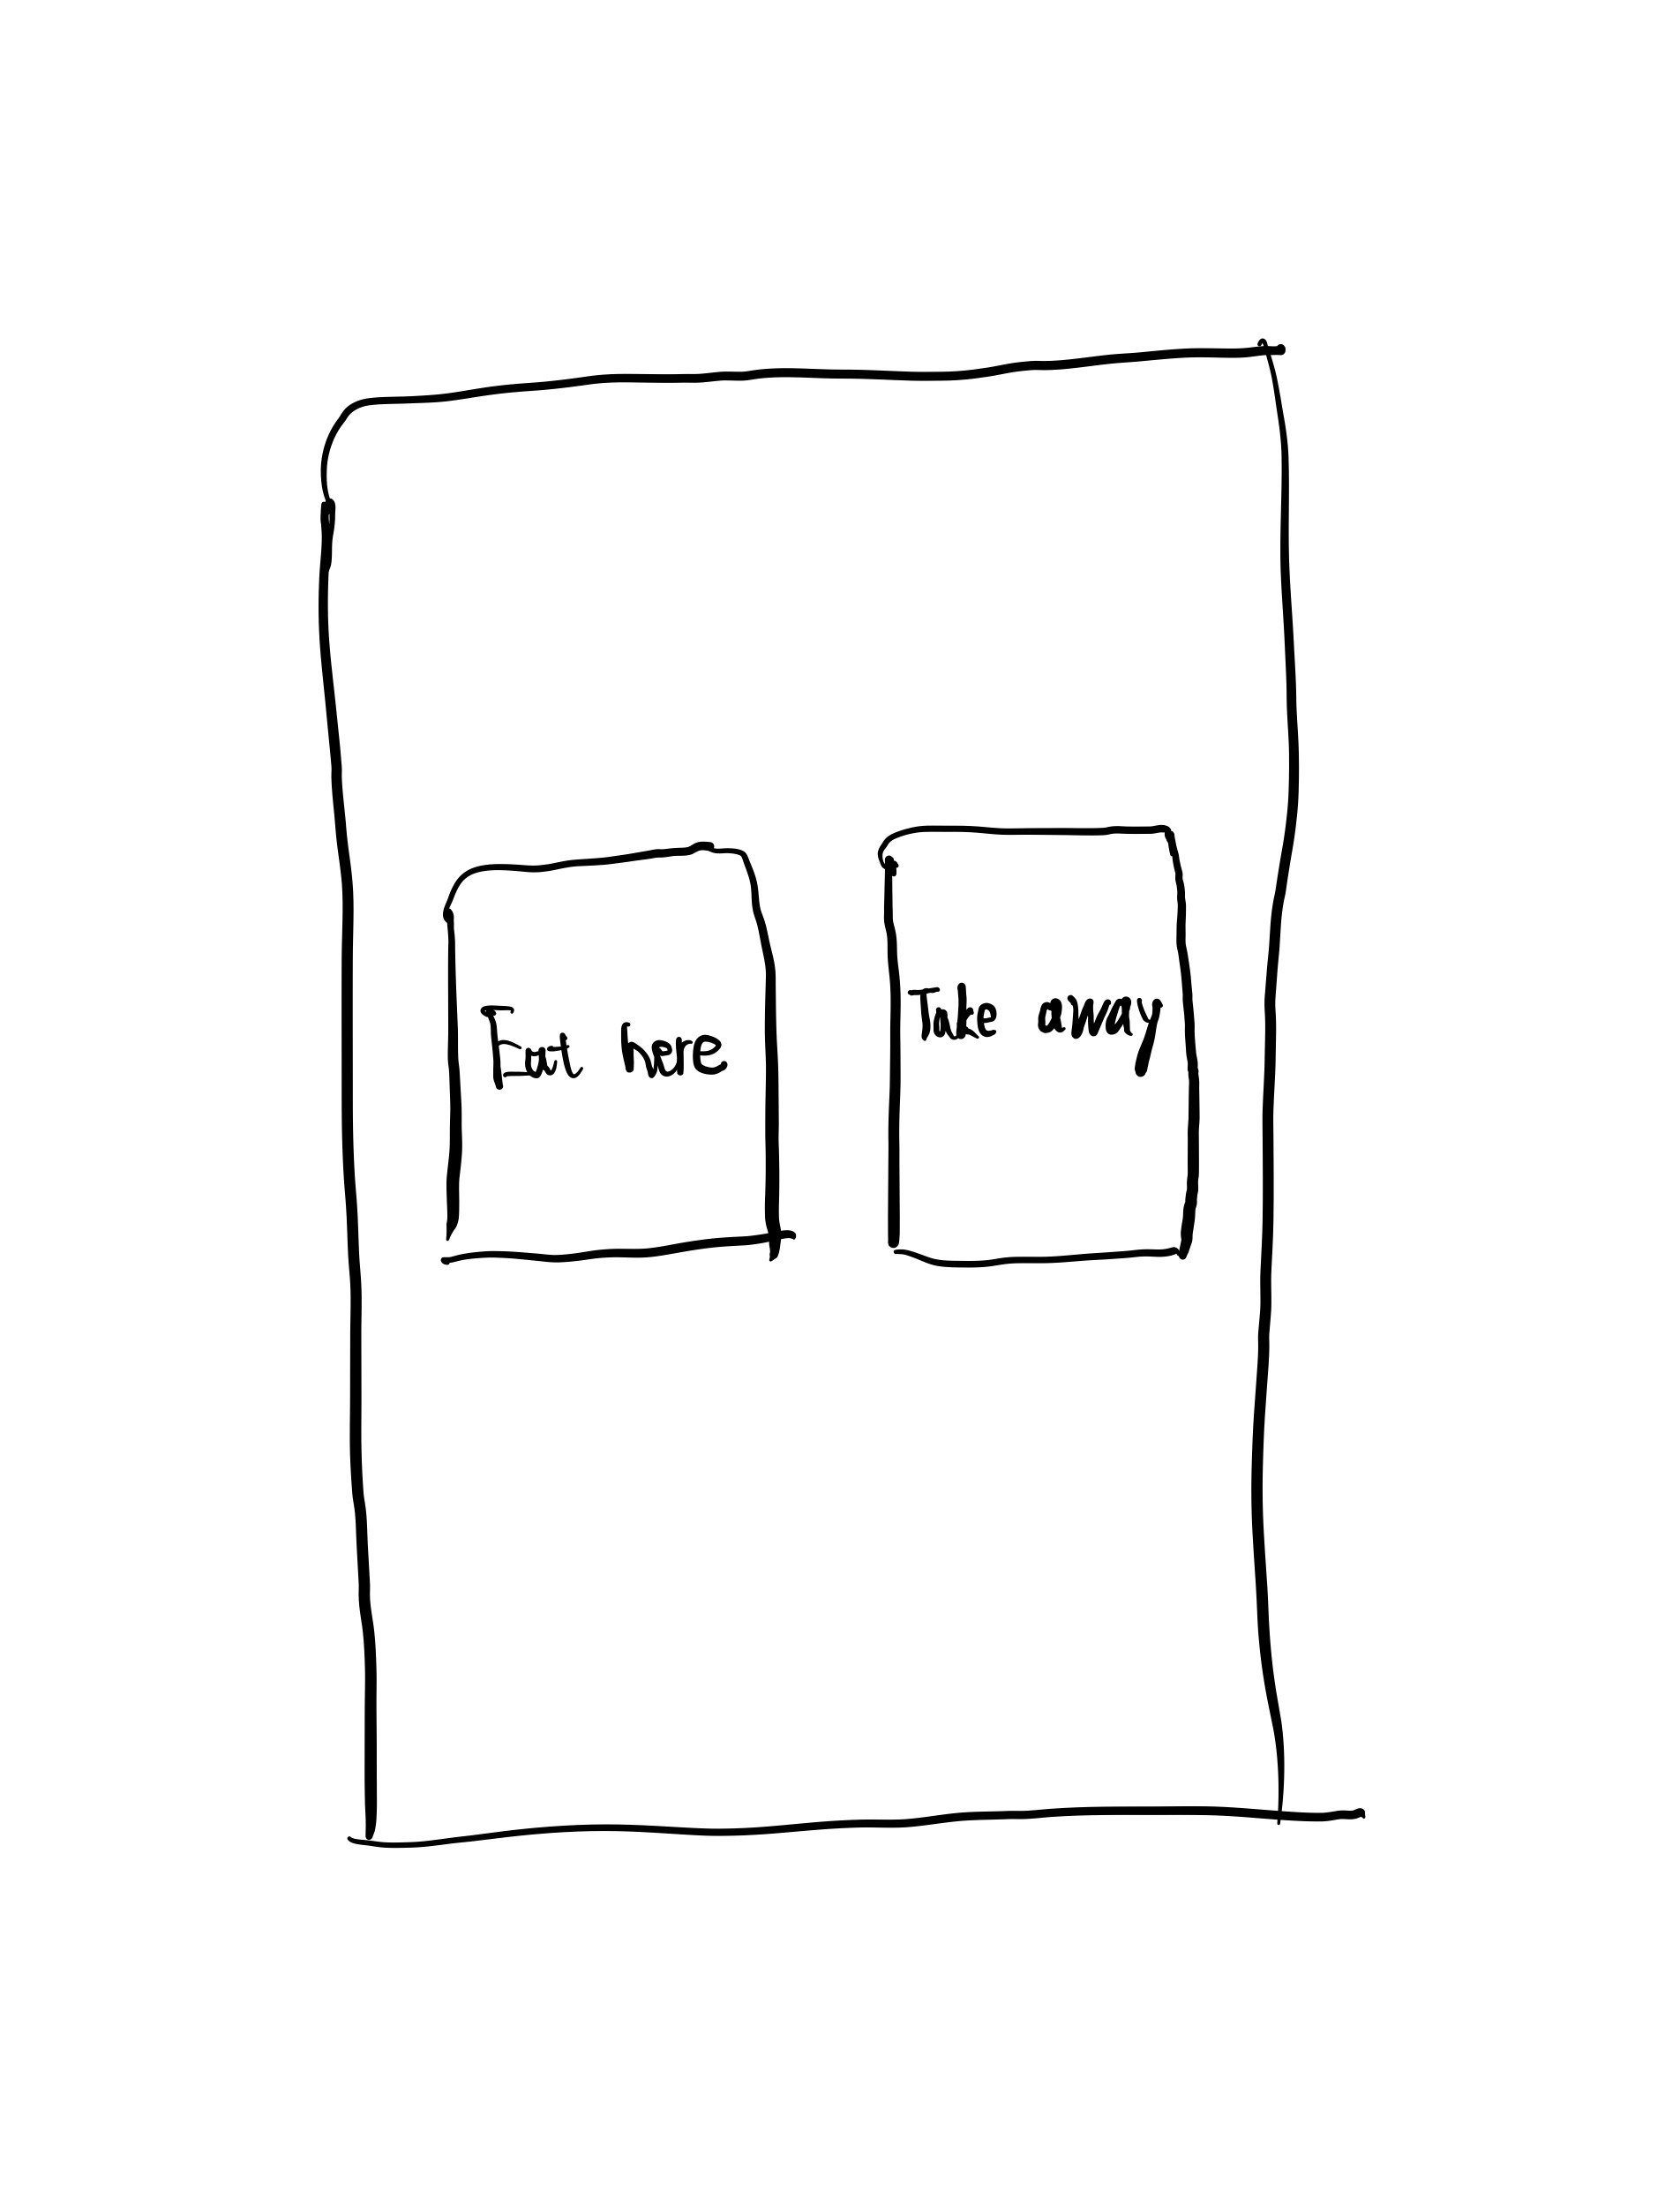 Eat here
Take away